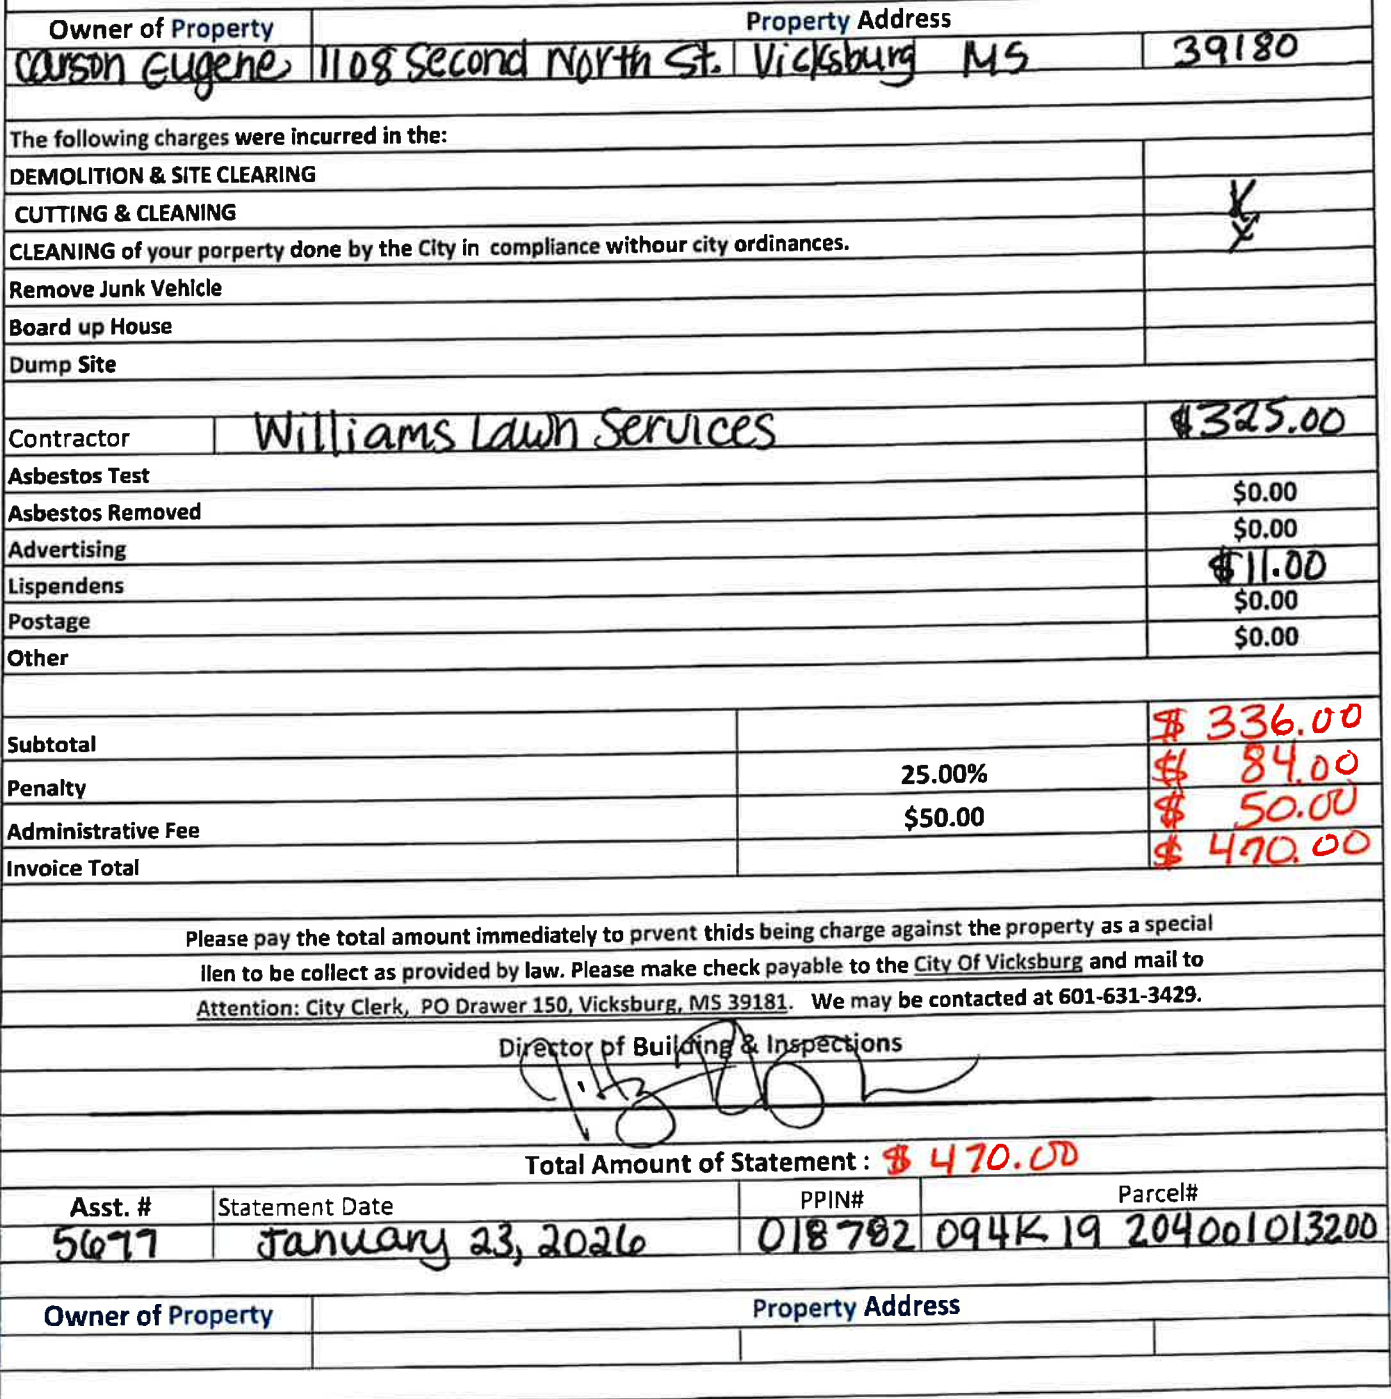 Owner of Property Property Address
Carson Eugene 1108 Second North St. Vicksburg MS 39180
The following charges were incurred in the:
DEMOLITION & SITE CLEARING
CUTTING & CLEANING X
CLEANING of your porperty done by the City in compliance withour city ordinances. X
Remove Junk Vehicle
Board up House
Dump Site
Contractor Williams Lawn Services $325.00
Asbestos Test
Asbestos Removed $0.00
Advertising $0.00
Lispendens $11.00
Postage $0.00
Other $0.00
Subtotal $ 336.00
Penalty 25.00% $ 84.00
Administrative Fee $50.00 $ 50.00
Invoice Total $ 470.00
Please pay the total amount immediately to prvent thids being charge against the property as a special
lien to be collect as provided by law. Please make check payable to the City Of Vicksburg and mail to
Attention: City Clerk, PO Drawer 150, Vicksburg, MS 39181. We may be contacted at 601-631-3429.
Director of Building & Inspections
Total Amount of Statement : $ 470.00
Asst. # Statement Date PPIN# Parcel#
5677 January 23, 2026 018782 094K 19 204001013200
Owner of Property Property Address